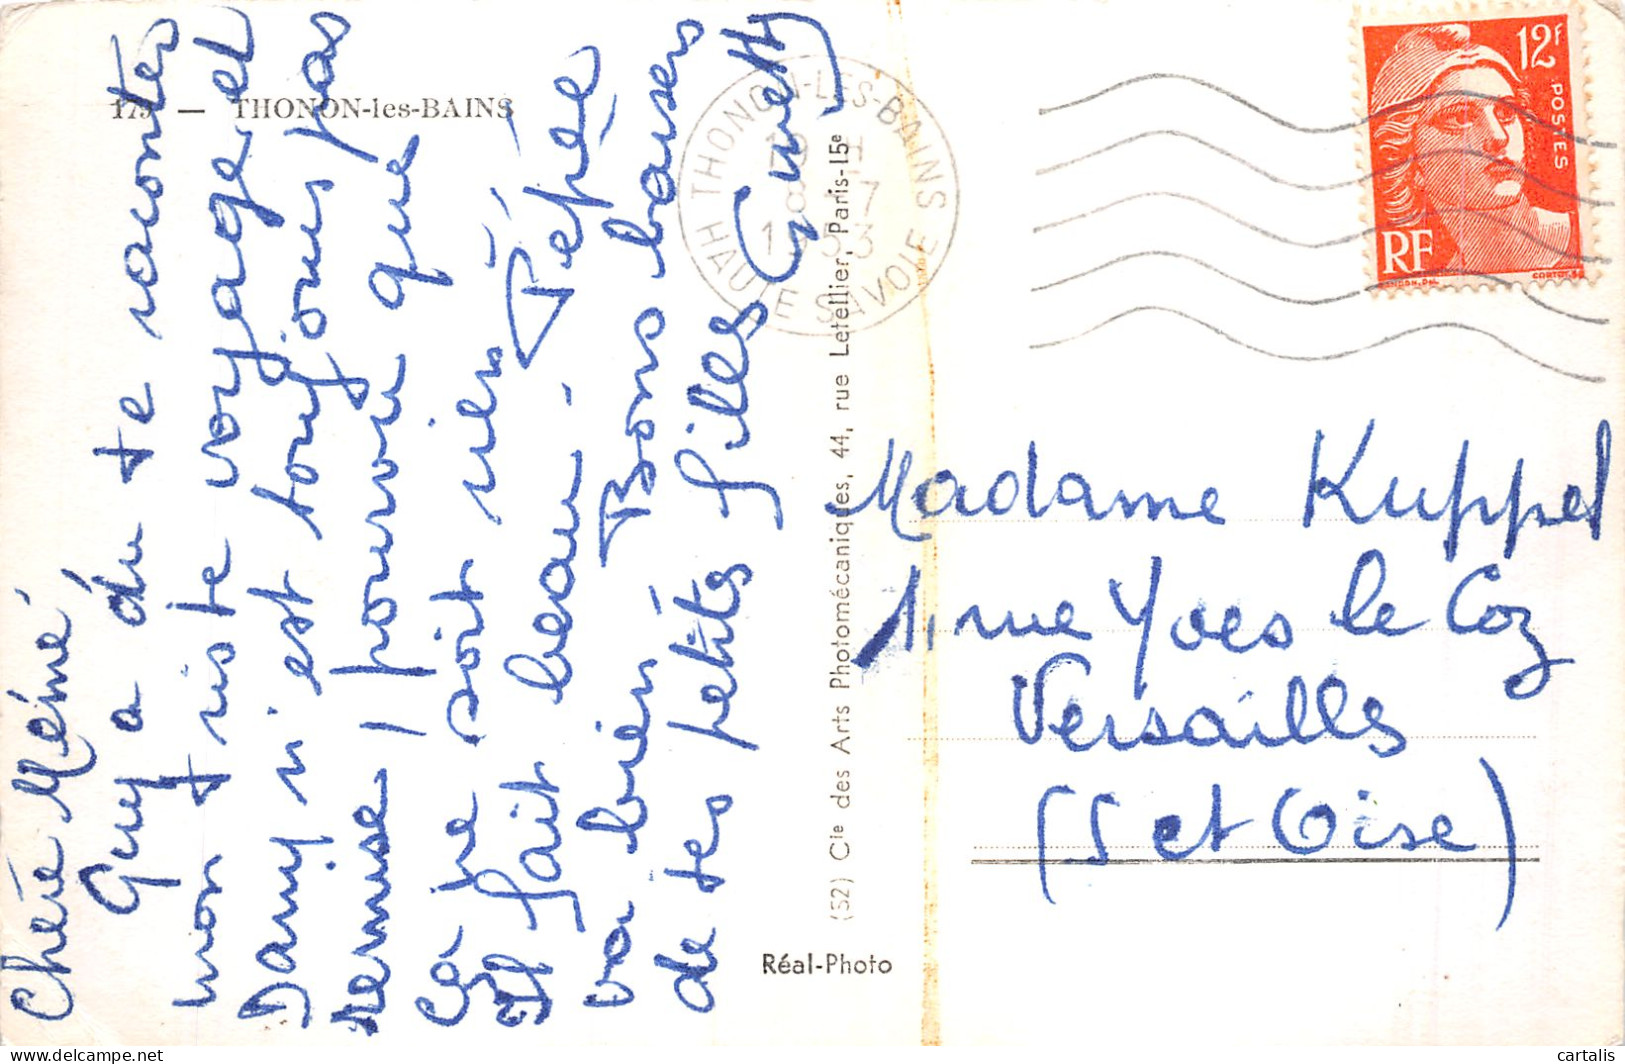 179 — THONON-les-BAINS
Chère Mémé
Guy a du te racontés
mon triste voyage et
Dany n'est toujours pas
remise, pourvu que
ce ne soit rien
Il fait beau - Pépée
va bien Bons baisers
de tes petites filles Ginette
Réal-Photo
(52) Cie des Arts Photomécaniques, 44, rue Letellier, Paris-15e
THONON-LES-BAINS
HAUTE SAVOIE
12F
POSTES
RF
Madame Kuppel
1, rue Yves le Coz
Versailles
(S et Oise)
cartalis